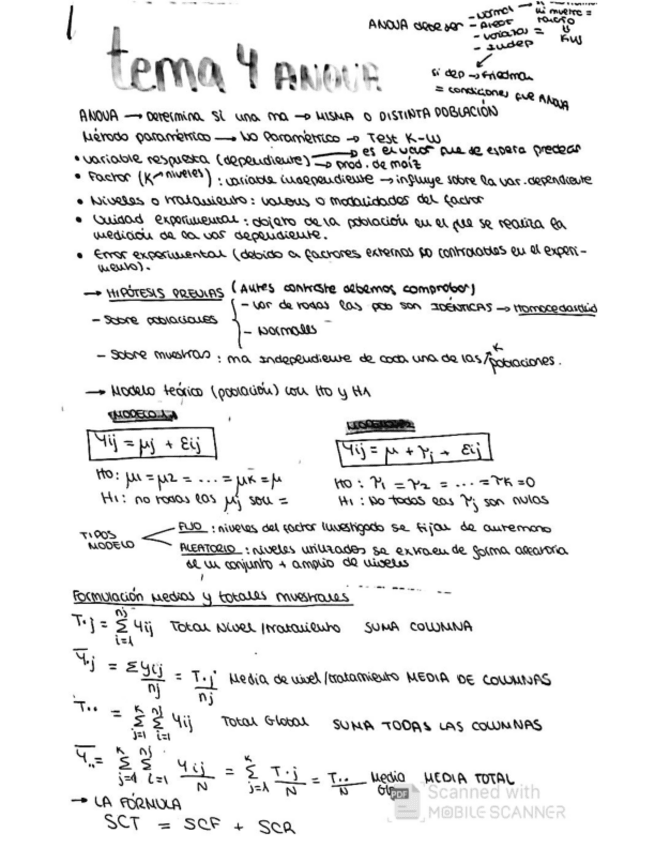 1
ANOVA debe ser - Normal
- Aleat
- varianzas =
- Indep
K-W
si dep → Friedman
= condiciones que ANOVA
tema 4 ANOVA
ANOVA → Determina si una ma → MISMA O DISTINTA POBLACIÓN
Método paramétrico → No Paramétrico → Test K-W
• variable respuesta (dependiente) → es el valor que se espera predecir
→ prod. de maíz
• Factor (K niveles) : variable independiente → influye sobre la var. dependiente
• Niveles o tratamiento : valores o modalidades del factor
• Unidad experimental : objeto de la población en el que se realiza la
medición de la var dependiente.
• Error experimental (debido a factores externos no controlables en el experi-
mento).
→ HIPÓTESIS PREVIAS (Antes contraste debemos comprobar)
- Sobre poblaciones
- var de todas las pob son IDÉNTICAS → Homocedasticid
- Normales
- Sobre muestras : ma independiente de cada una de las K poblaciones.
→ Modelo teórico (población) con H0 y H1
MODELO 1
Yij = μj + εij
Yij = μ + τj + εij
H0: μ1 = μ2 = ... = μK = μ
H0 : τ1 = τ2 = ... = τK = 0
H1: no todas las μj son =
H1 : No todas las τj son nulas
TIPOS MODELO
FIJO : niveles del factor investigado se fijan de antemano
ALEATORIO : niveles utilizados se extraen de forma aleatoria
de un conjunto + amplio de niveles
Formulación Medias y totales muestrales
T.j = Σ(i=1, nj) Yij Total Nivel/tratamiento SUMA COLUMNA
Y̅.j = Σyij/nj = T.j/nj Media de nivel/tratamiento MEDIA DE COLUMNAS
T.. = Σ(j=1, K) Σ(i=1, nj) Yij Total Global SUMA TODAS LAS COLUMNAS
Y̅.. = Σ(j=1, K) Σ(i=1, nj) Yij/N = Σ(j=1, K) T.j/N = T../N Media MEDIA TOTAL
→ LA FÓRMULA
SCT = SCF + SCR
PDF Scanned with
MOBILE SCANNER